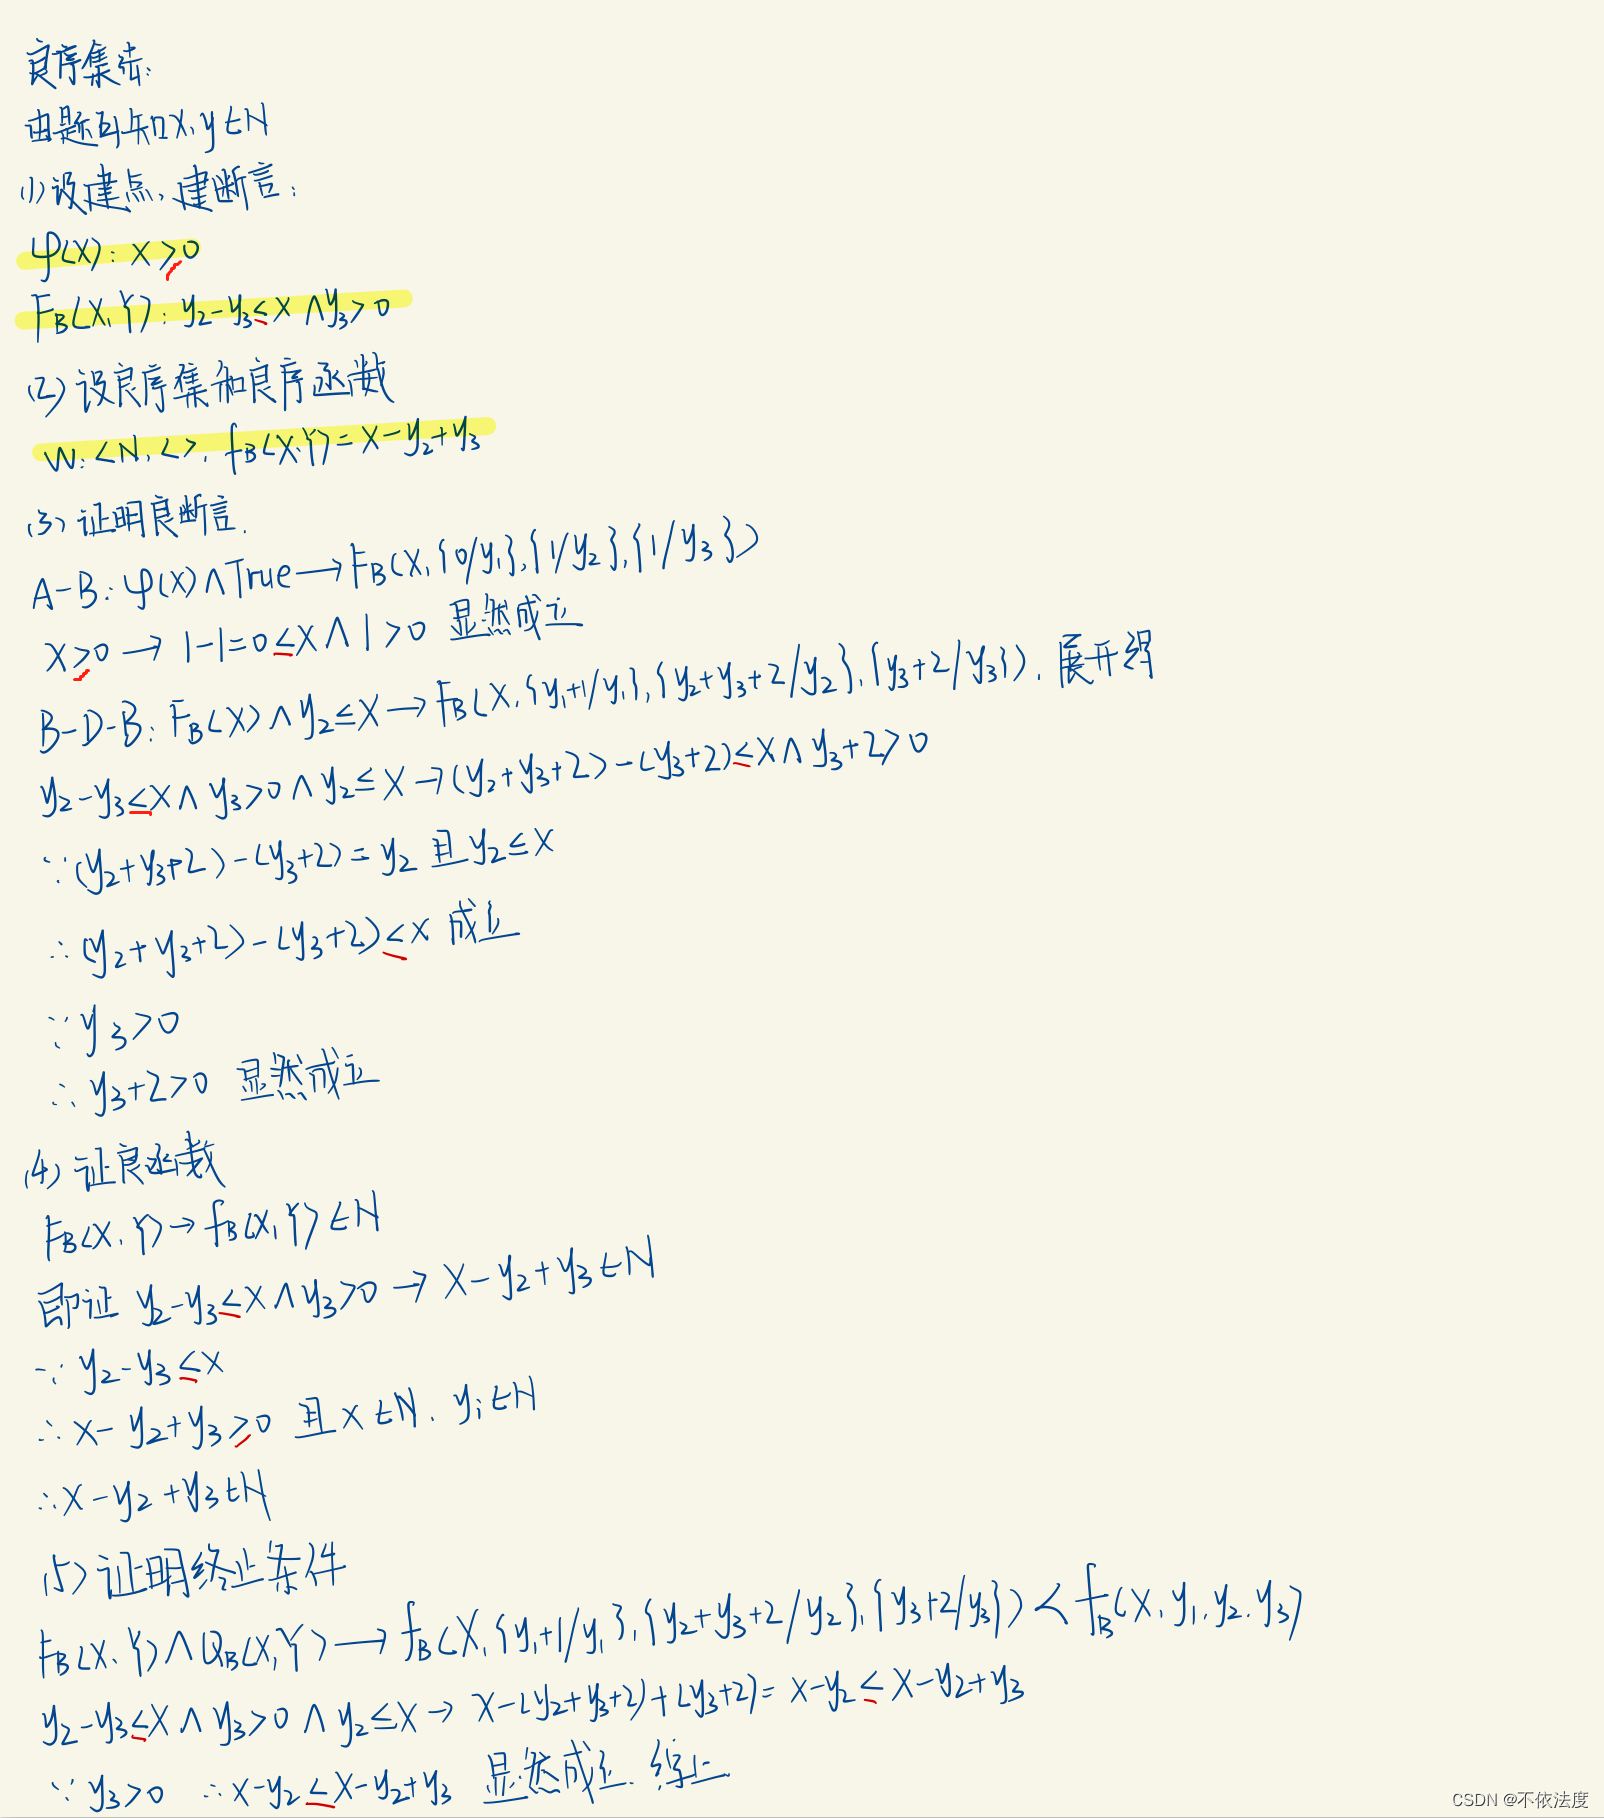 良序集法:
由题可知x,y∈N
(1)设建点、建断言:
φ(x): x≥0
F_B(X,Y): y₂-y₃≤x∧y₃>0
(2)设良序集和良序函数
W:<N,<>, f_B(X,Y)=x-y₂+y₃
(3)证明良断言.
A-B: φ(x)∧True→F_B(X,{0/y₁},{1/y₂},{1/y₃})
x≥0→1-1=0≤x∧1>0 显然成立
B-D-B: F_B(X)∧y₂≤x→F_B(X,{y₁+1/y₁},{y₂+y₃+2/y₂},{y₃+2/y₃}), 展开得
y₂-y₃≤x∧y₃>0∧y₂≤x→(y₂+y₃+2)-(y₃+2)≤x∧y₃+2>0
∵(y₂+y₃+2)-(y₃+2)=y₂ 且y₂≤x
∴(y₂+y₃+2)-(y₃+2)≤x 成立
∵y₃>0
∴y₃+2>0 显然成立
(4)证良函数
F_B(X,Y)→f_B(X,Y)∈N
即证 y₂-y₃≤x∧y₃>0→x-y₂+y₃∈N
∵y₂-y₃≤x
∴x-y₂+y₃≥0 且x∈N, yᵢ∈N
∴x-y₂+y₃∈N
(5)证明终止条件
F_B(X,Y)∧Q_B(X,Y)→f_B(X,{y₁+1/y₁},{y₂+y₃+2/y₂},{y₃+2/y₃})<f_B(X,y₁,y₂,y₃)
y₂-y₃≤x∧y₃>0∧y₂≤x→x-(y₂+y₃+2)+(y₃+2)=x-y₂≤x-y₂+y₃
∵y₃>0 ∴x-y₂≤x-y₂+y₃ 显然成立. 综上
CSDN @不依法度